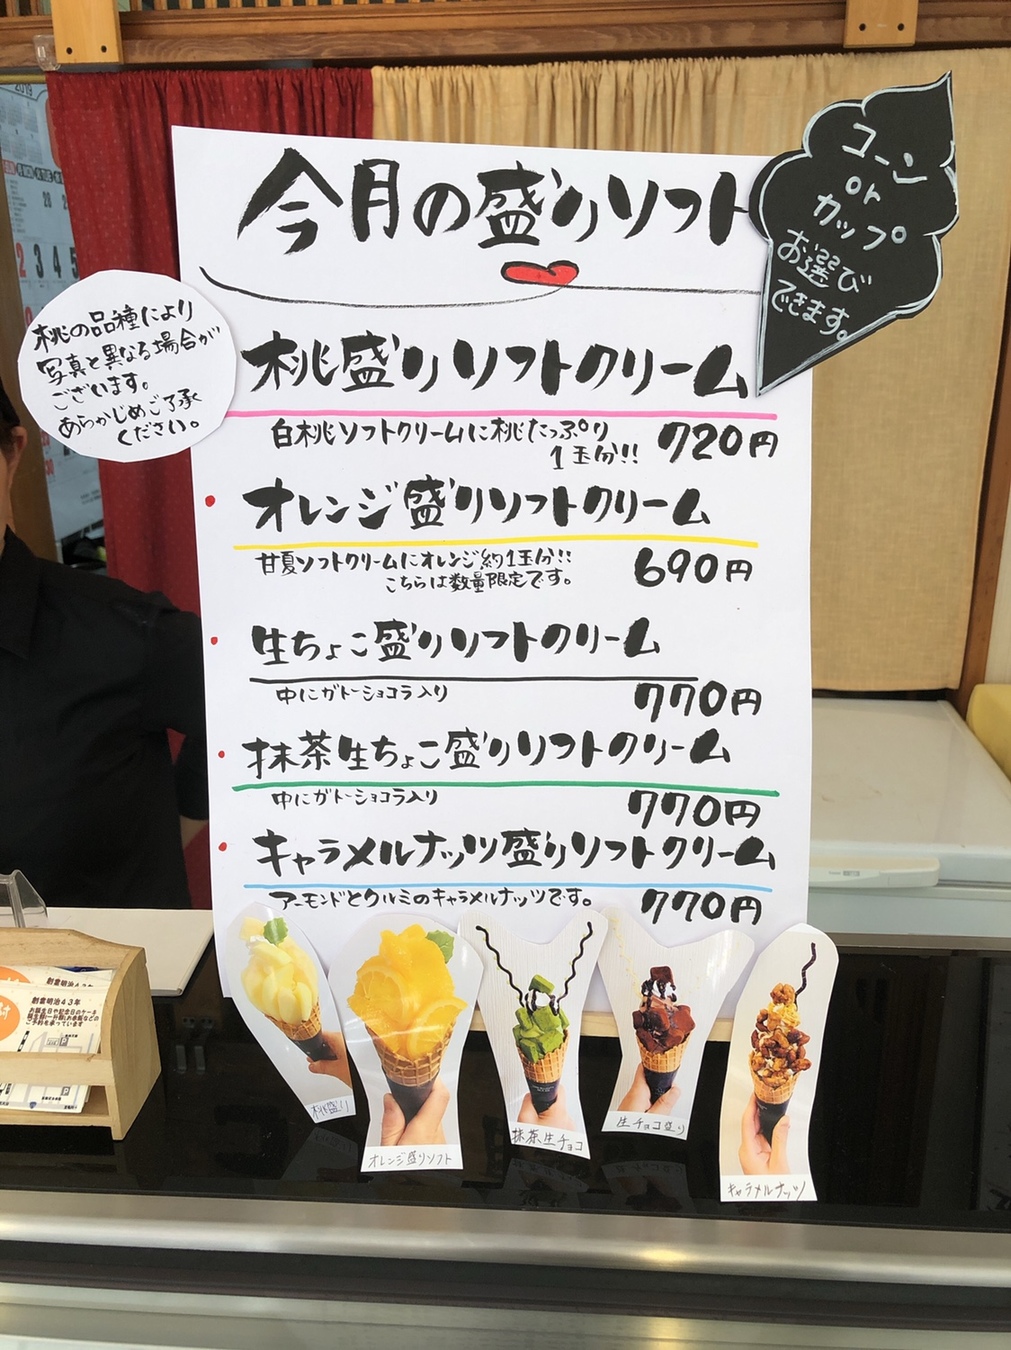 今月の盛りソフト
コーン
or
カップ
お選び
できます。
桃の品種により
写真と異なる場合が
ございます。
あらかじめご了承
ください。
桃盛りソフトクリーム
白桃ソフトクリームに桃たっぷり
1玉分!!
720円
オレンジ盛りソフトクリーム
甘夏ソフトクリームにオレンジ約1玉分!!
こちらは数量限定です。
690円
生ちょこ盛りソフトクリーム
中にガトーショコラ入り
770円
抹茶生ちょこ盛りソフトクリーム
中にガトーショコラ入り
770円
キャラメルナッツ盛りソフトクリーム
アーモンドとクルミのキャラメルナッツです。
770円
桃盛り
オレンジ盛りソフト
抹茶生チョコ
生チョコ盛り
キャラメルナッツ
創業明治43年
お誕生日や記念日のケーキ
ご予約を承っています
2019
3 4 5